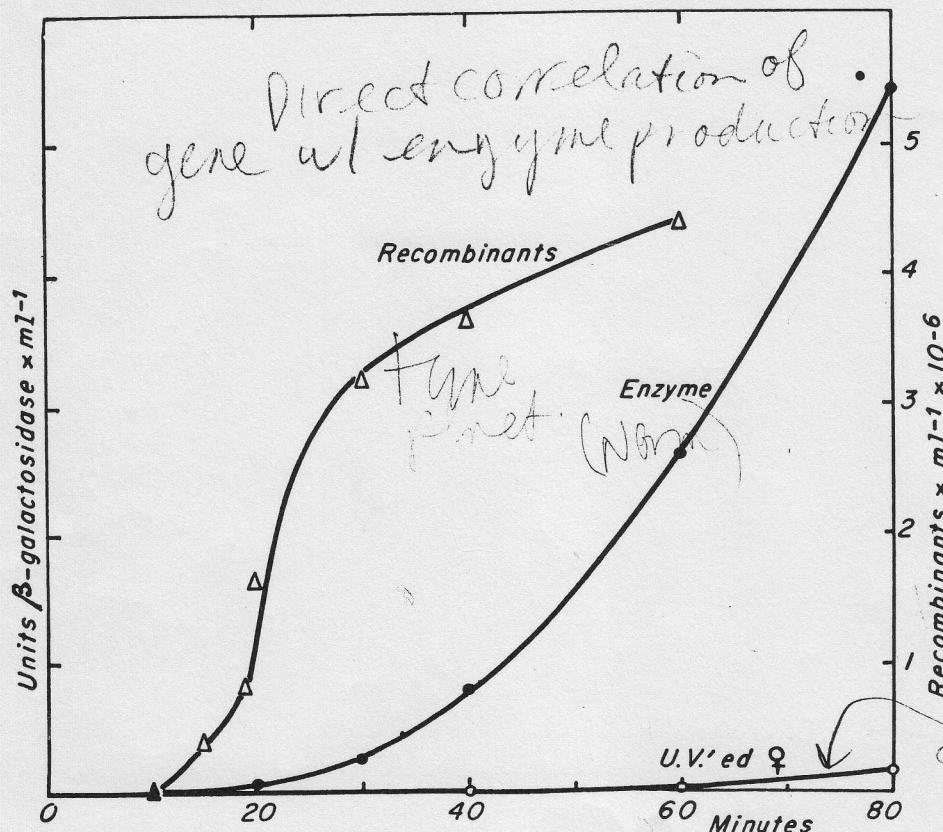 Direct correlation of
gene w/ enzyme production
Recombinants
Enzyme
(Norm)
U.V.'ed ♀
Units β-galactosidase × ml-1
Recombinants × ml-1 × 10-6
5
4
3
2
1
0
20
40
60
80
Minutes